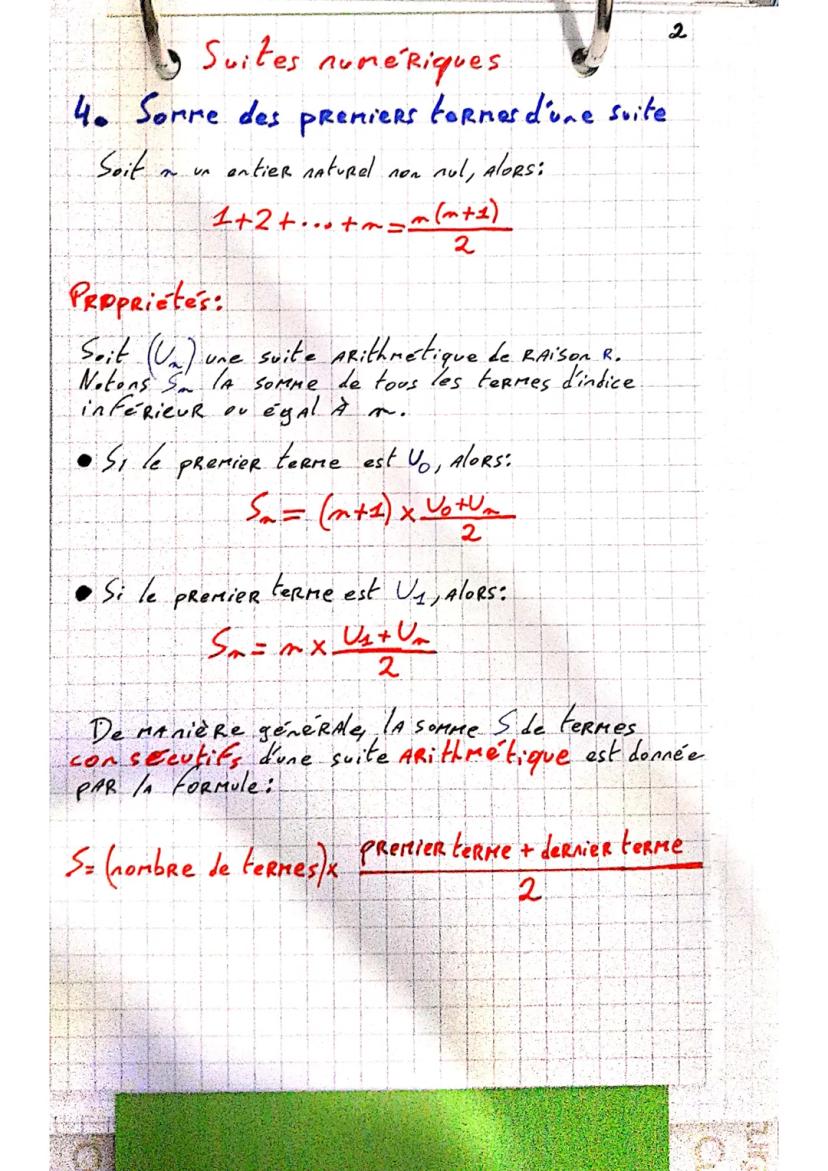 2
Suites numériques
4. Somme des premiers termes d'une suite
Soit n un entier naturel non nul, alors:
1+2+...+n = n(n+1)/2
Propriétés:
Soit (Un) une suite arithmétique de raison R.
Notons Sn la somme de tous les termes d'indice
inférieur ou égal à n.
• Si le premier terme est U0, alors:
Sn = (n+1) × (U0+Un)/2
• Si le premier terme est U1, alors:
Sn = n × (U1+Un)/2
De manière générale, la somme S de termes
consécutifs d'une suite arithmétique est donnée
par la formule:
S= (nombre de termes)× (premier terme + dernier terme)/2